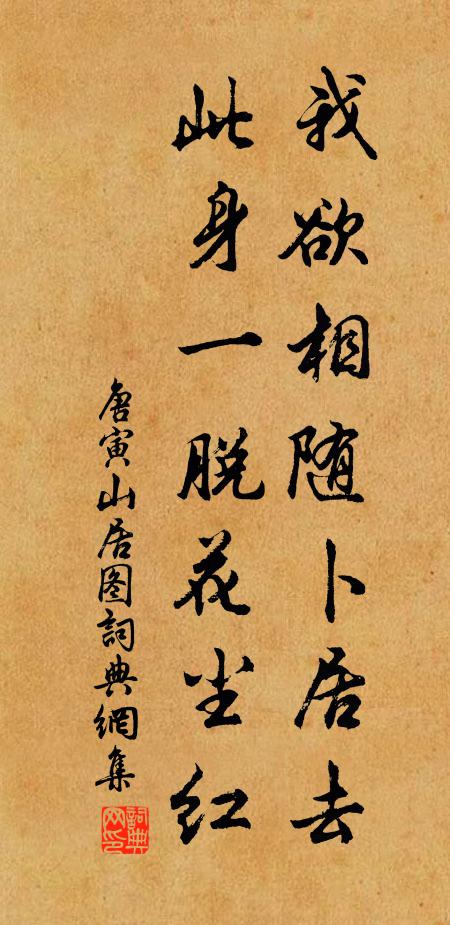 我欲相随卜居去
此身一脱花尘红
唐寅山居图詞典網集
詞典
网印